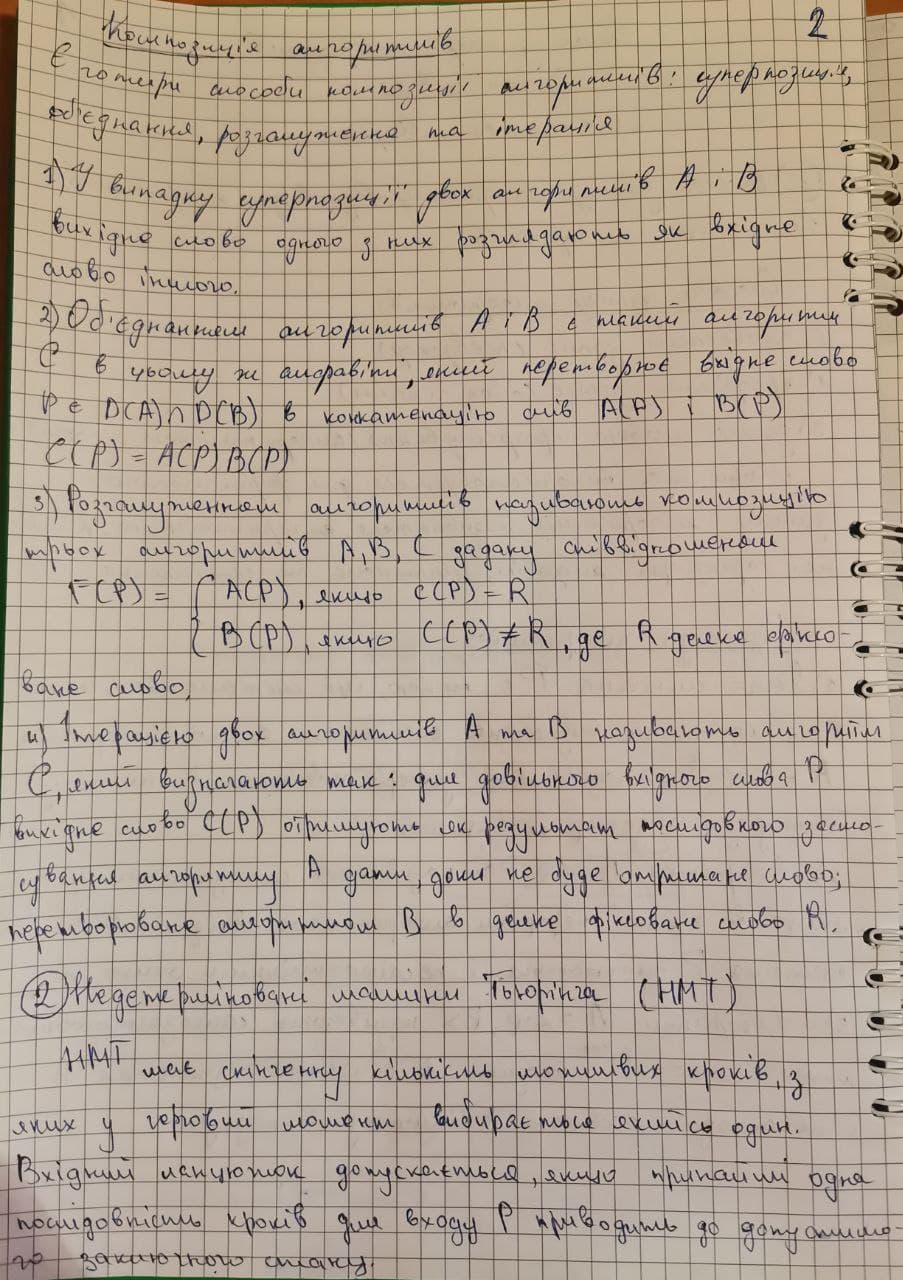 2
Композиція алгоритмів
Є чотири способи композиції алгоритмів: суперпозиція,
об'єднання, розгалуження та ітерація
1) У випадку суперпозиції двох алгоритмів A і B
вихідне слово одного з них розглядають як вхідне
слово іншого.
2) Об'єднанням алгоритмів A і B є такий алгоритм
C в цьому ж алфавіті, який перетворює вхідне слово
P ∈ D(A)∩D(B) в конкатенацію слів A(P) і B(P)
C(P) = A(P)B(P)
3) Розгалуженням алгоритмів називають композицію
трьох алгоритмів A, B, C задану співвідношеням
F(P) = { A(P), якщо C(P) = R
{ B(P), якщо C(P) ≠ R, де R деяке фіксо-
ване слово.
4) Ітерацією двох алгоритмів A та B називають алгоритм
C, який визначають так: для довільного вхідного слова P
вихідне слово C(P) отримують як результат послідовного засто-
сування алгоритму A доти, доки не буде отримане слово,
перетворюване алгоритмом B в деяке фіксоване слово R.
2 Недетерміновані машини Тьюрінга (НМТ)
НМТ має скінченну кількість можливих кроків, з
яких у черговий момент вибирається якийсь один.
Вхідний ланцюжок допускається, якщо принаймі одна
послідовність кроків для входу P приводить до допустимо-
го заключного стану.